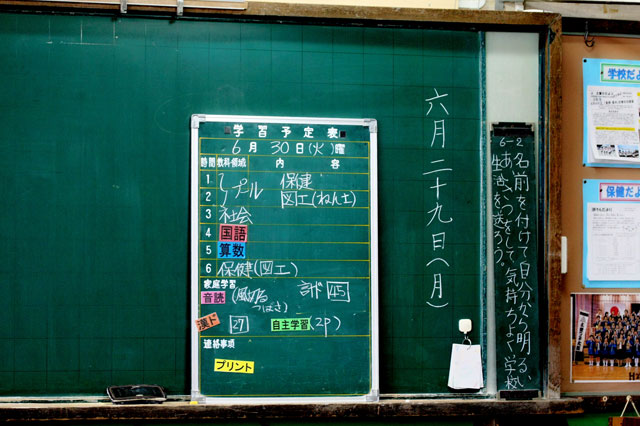 学習予定表
6月30日(火)曜
時間 教科領域 内容
1 プール 保健
2 図工(ねん土)
3 社会
4 国語
5 算数
6 保健(図工)
家庭学習
音読 (風切るつばさ) 計ド 45
漢ド 27 自主学習 (2p)
連絡事項
プリント
六月二十九日(月)
6-2
名前を付けて自分から明るい
あいさつをして気持ちよい学校
生活を送ろう。
学校だよ
保健だよ